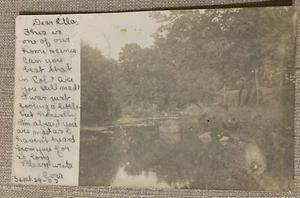 Dear Ella,
This is
one of our
home scenes
Can you
beat that
in Col? Are
you still mad?
I was just
fooling a little
but honestly
I'm afraid you
are mad as I
haven't heard
from you for
so long
Please write
Sept 29-07